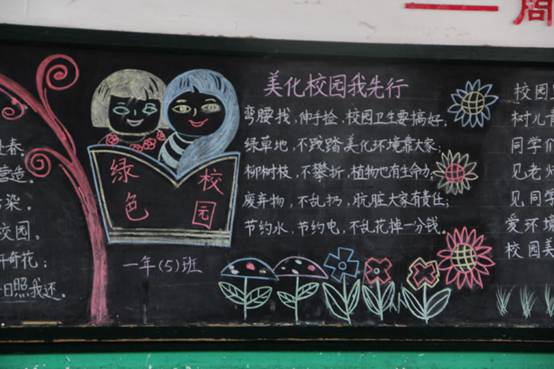 周
美化校园我先行
弯腰找,伸手捡,校园卫生要搞好。
绿草地,不践踏美化环境靠大家;
柳树枝,不攀折,植物也有生命力;
废弃物,不乱扔,肮脏大家有责任;
节约水,节约电,不乱花掉一分钱。
绿色
校园
一年(5)班
春
营造。
染、
校园。
开奇花;
日照我还。
校园
树儿青
同学们
见老师
见同学
爱环境
校园美